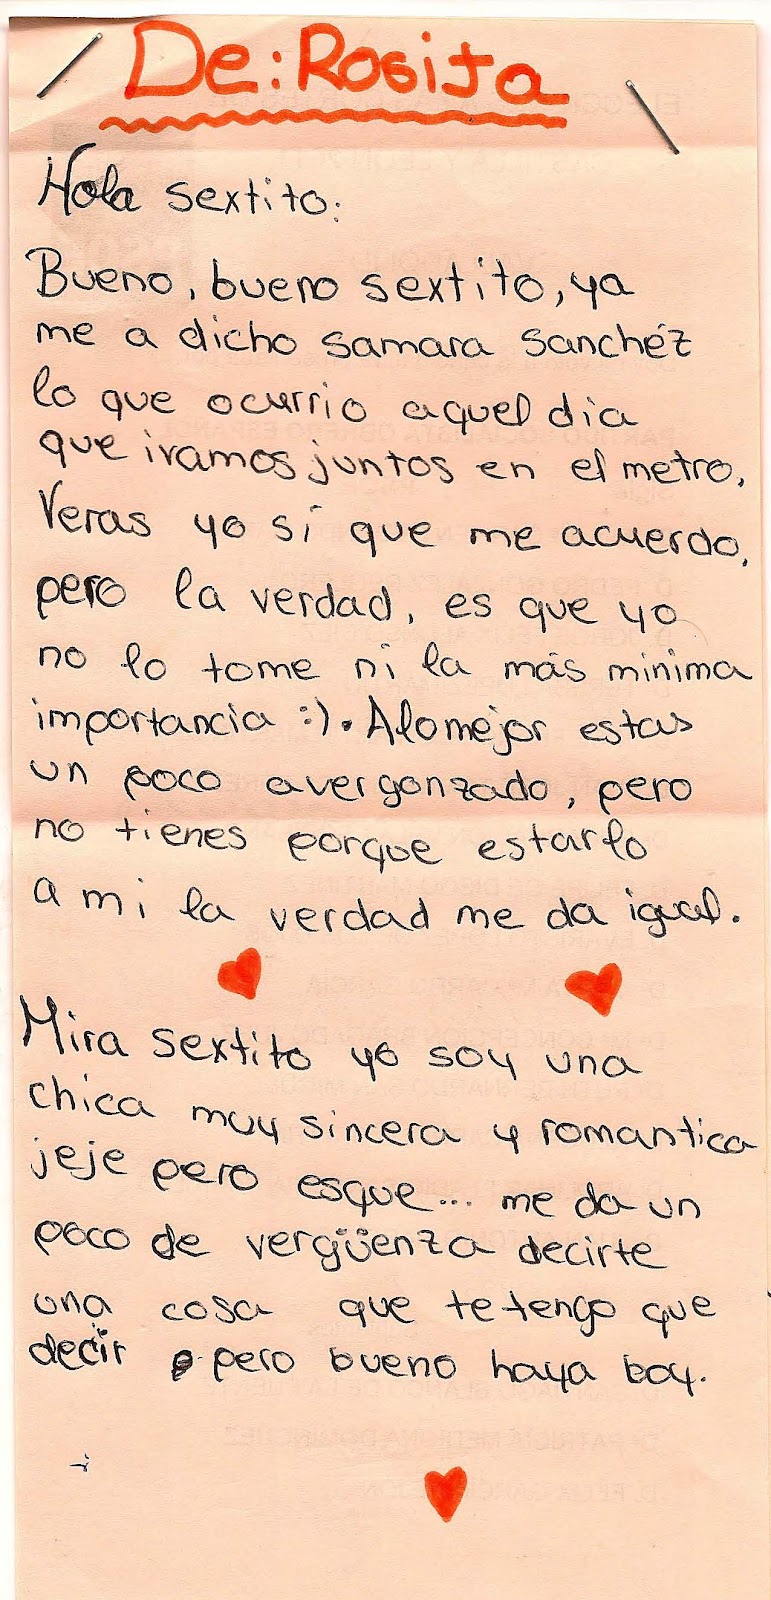 De: Rosita
Hola sextito:
Bueno, bueno sextito, ya
me a dicho samara sanchéz
lo que ocurrio aquel dia
que ivamos juntos en el metro,
Veras yo sí que me acuerdo,
pero la verdad, es que yo
no lo tome ni la más minima
importancia :). Alomejor estas
un poco avergonzado, pero
no tienes porque estarlo
a mi la verdad me da igual.
Mira sextito yo soy una
chica muy sincera y romantica
jeje pero esque... me da un
poco de vergüenza decirte
una cosa que te tengo que
decir pero bueno haya boy.